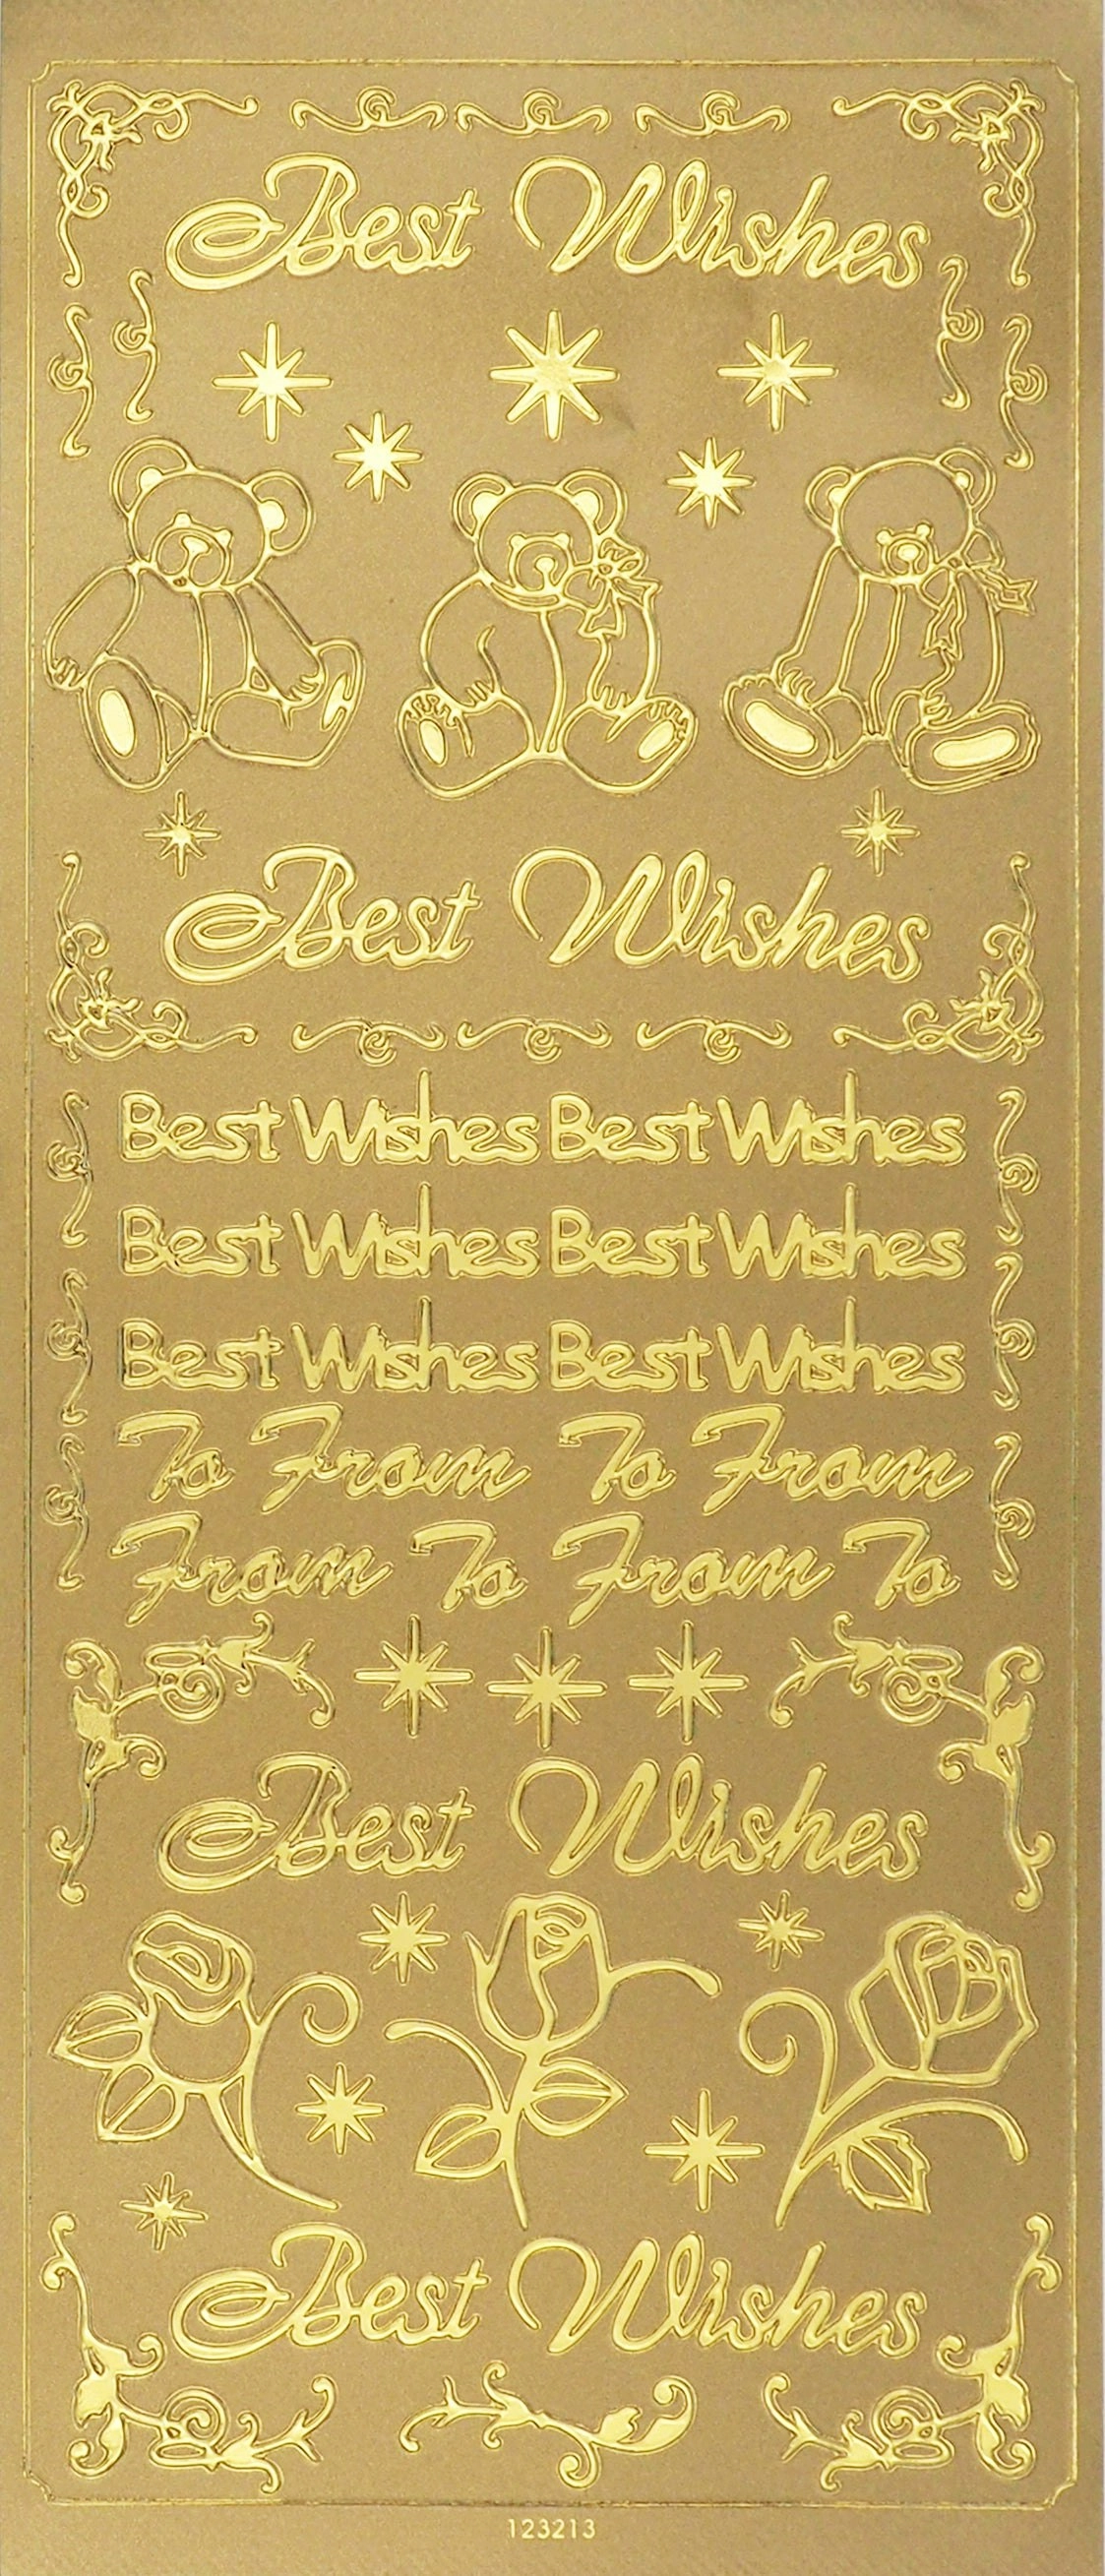 Best Wishes
Best Wishes
Best Wishes Best Wishes
Best Wishes Best Wishes
Best Wishes Best Wishes
To From To From
From To From To
Best Wishes
Best Wishes
123213